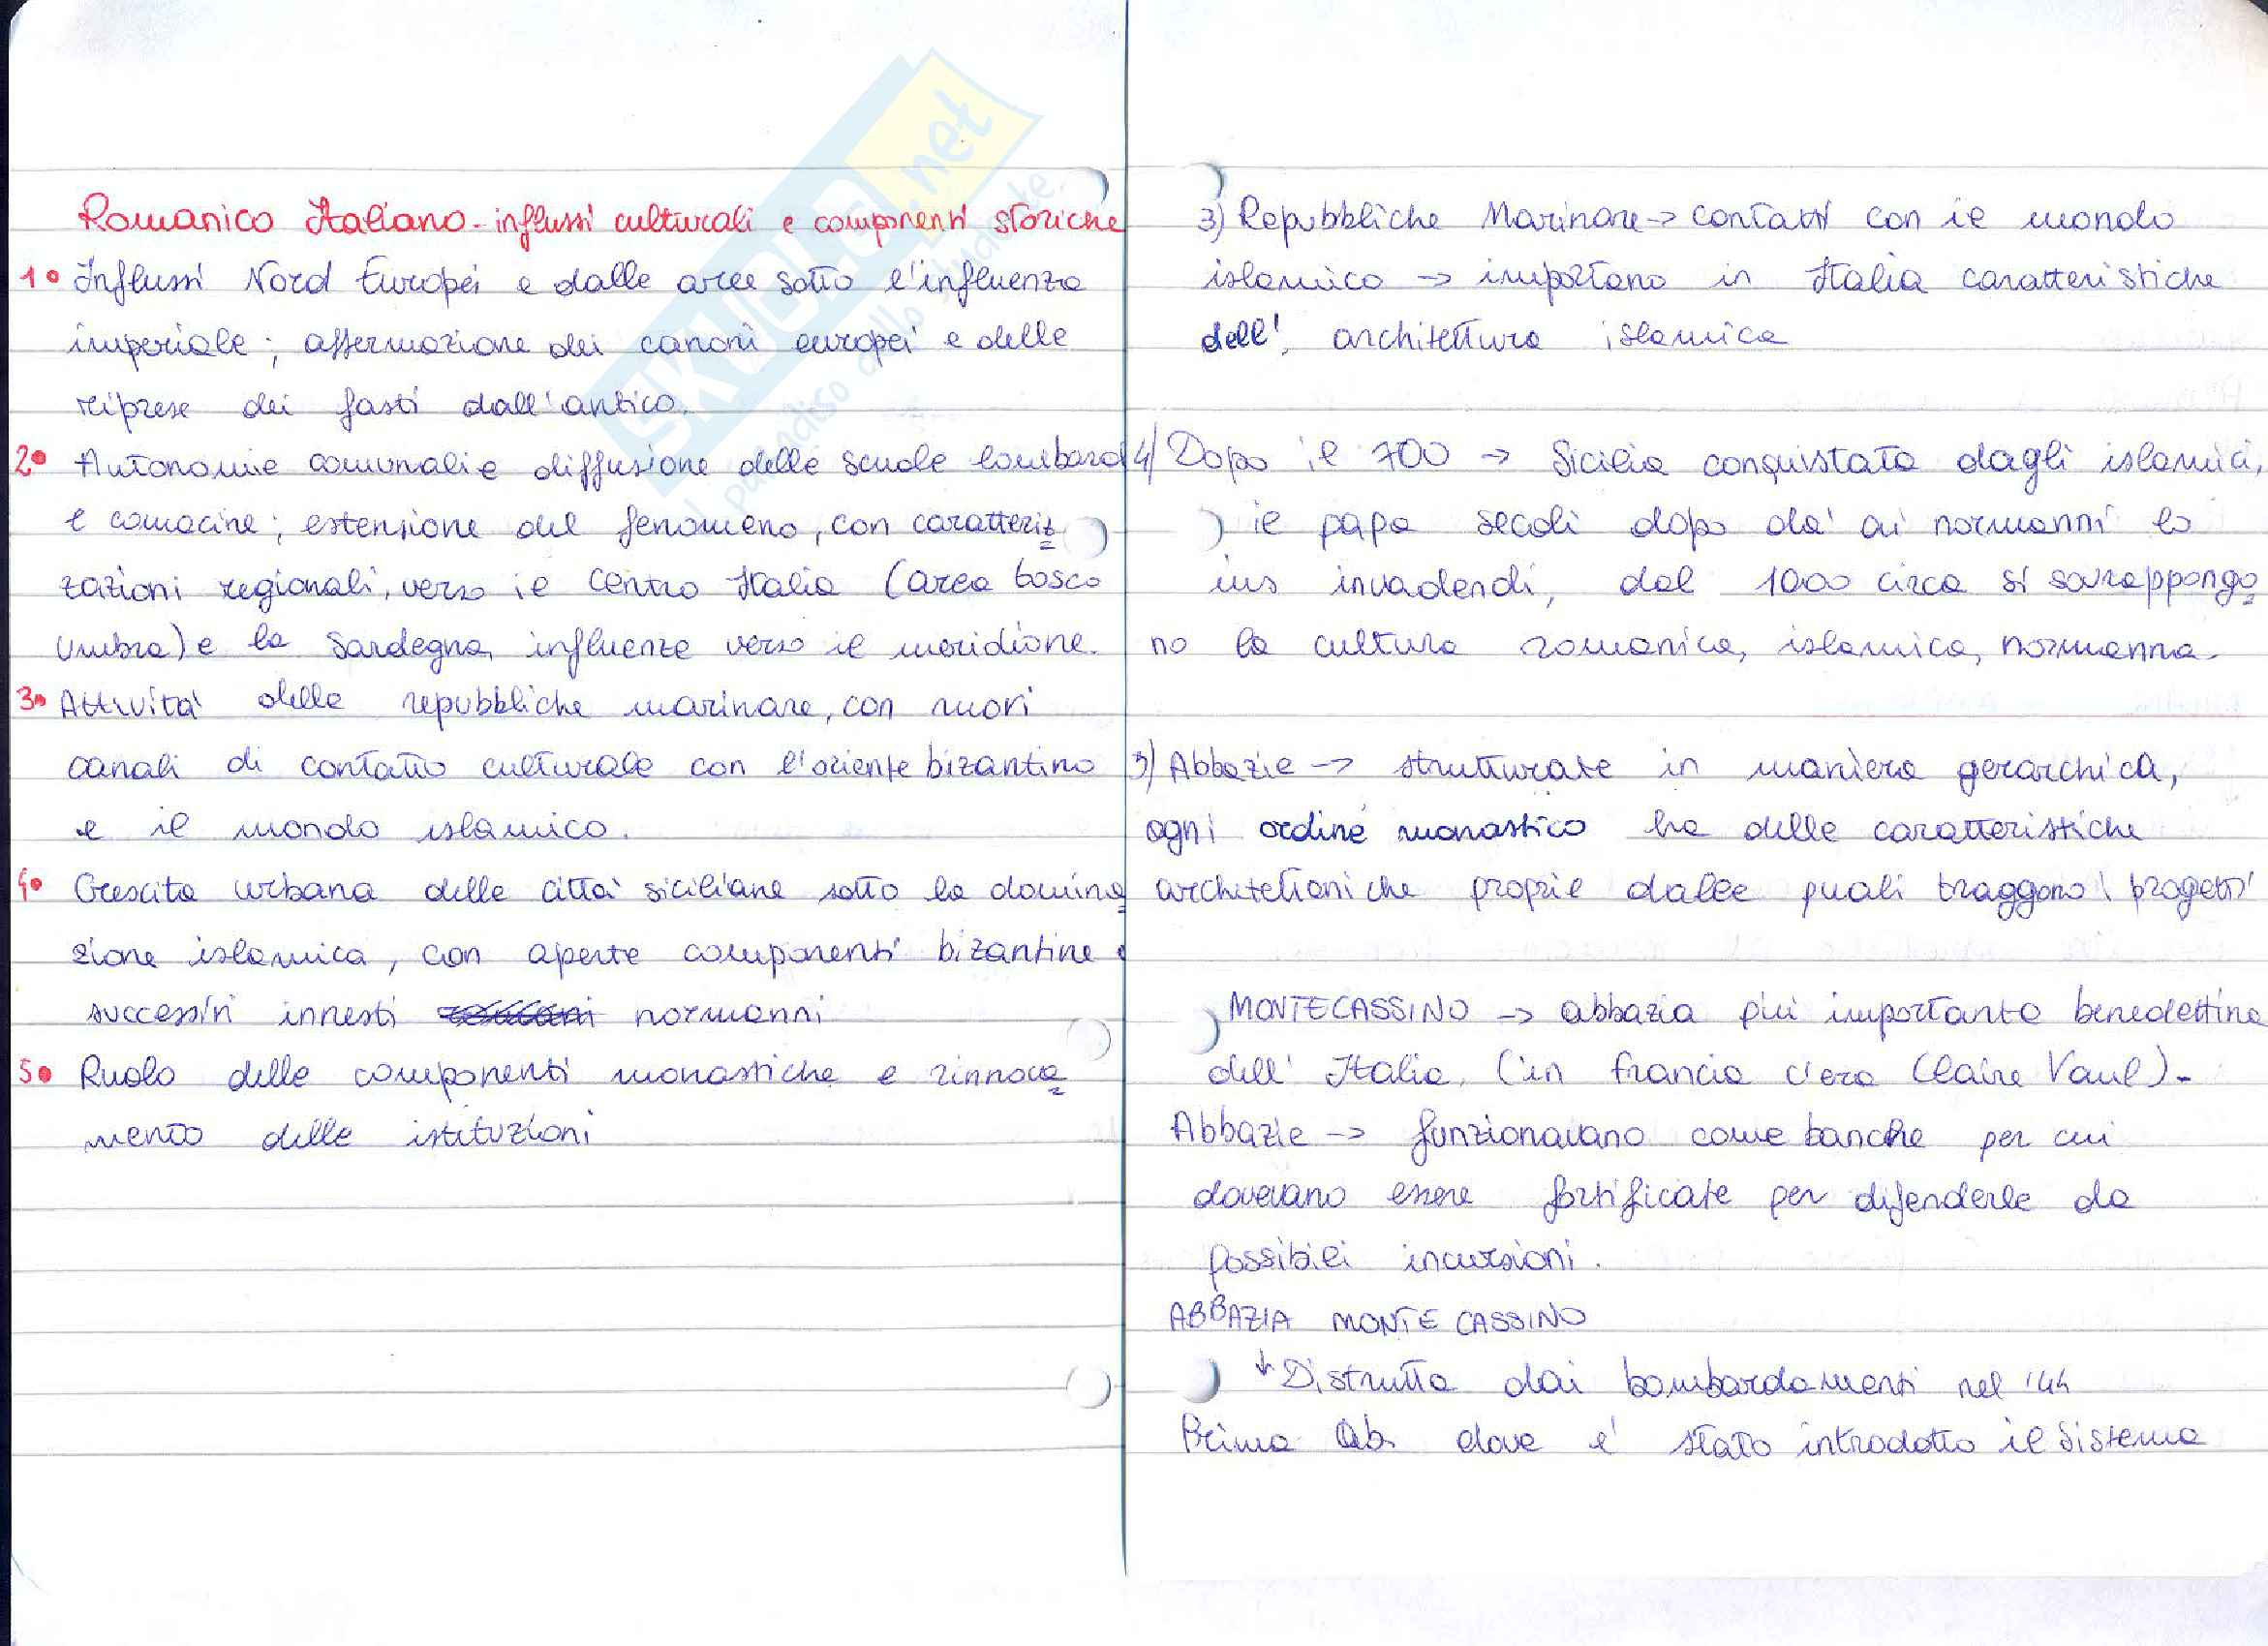 Romanico Italiano - influssi culturali e componenti storiche
1• Influssi Nord Europei e dalle aree sotto l'influenza
imperiale; affermazione dei canoni europei e delle
riprese dei fasti dall'antico.
2• Autonomie comunali e diffusione delle scuole lombard
e comacine; estensione del fenomeno, con caratteriz
zazioni regionali, verso il centro Italia (area tosco
umbra) e la Sardegna, influenze verso il meridione.
3• Attività delle repubbliche marinare, con nuovi
canali di contatto culturale con l'oriente bizantino
e il mondo islamico.
4• Crescita urbana delle città siciliane sotto la domina
zione islamica, con aperte componenti bizantine e
successivi innesti normanni
5• Ruolo delle componenti monastiche e rinnova
mento delle istituzioni
3) Repubbliche Marinare -> contatti con il mondo
islamico -> importano in Italia caratteristiche
dell' architettura islamica
4) Dopo il 700 -> Sicilia conquistata dagli islamici,
il papa secoli dopo dà ai normanni lo
ius invadendi, dal 1000 circa si sovrappongo
no la cultura romanica, islamica, normanna.
5) Abbazie -> strutturate in maniera gerarchica,
ogni ordine monastico ha delle caratteristiche
architettoniche proprie dalle quali traggono i progetti
MONTECASSINO -> abbazia più importante benedettina
dell' Italia. (in Francia c'era Claire Vaul).
Abbazie -> funzionavano come banche per cui
dovevano essere fortificate per difenderle da
possibili incursioni.
ABBAZIA MONTE CASSINO
↓ Distrutta dai bombardamenti nel '44
Prima ab. dove è stato introdotto il sistema
SKUOLA.net
il paradiso dello studente.